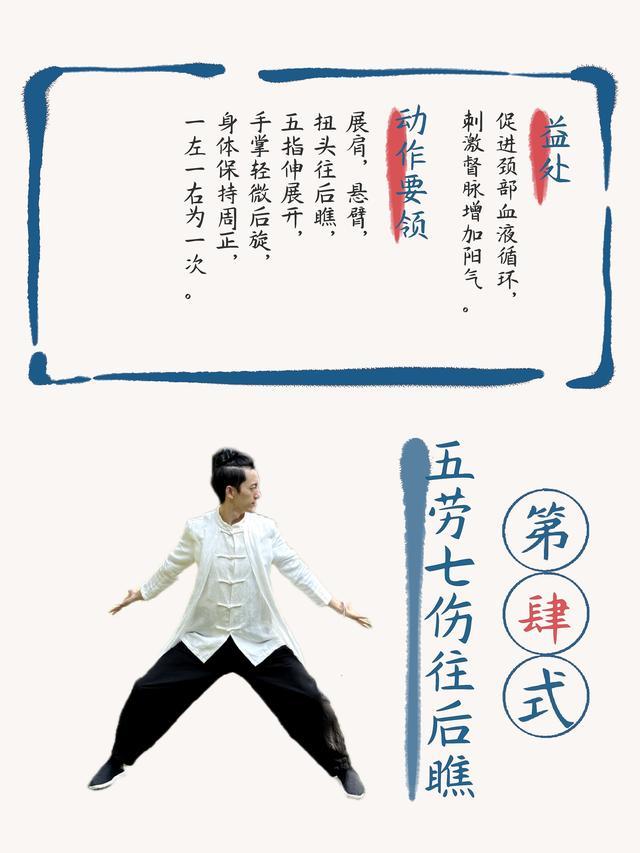 益处
促进颈部血液循环，
刺激督脉增加阳气。
动作要领
展肩，悬臂，
扭头往后瞧，
五指伸展开，
手掌轻微后旋，
身体保持周正，
一左一右为一次。
第肆式
五劳七伤往后瞧